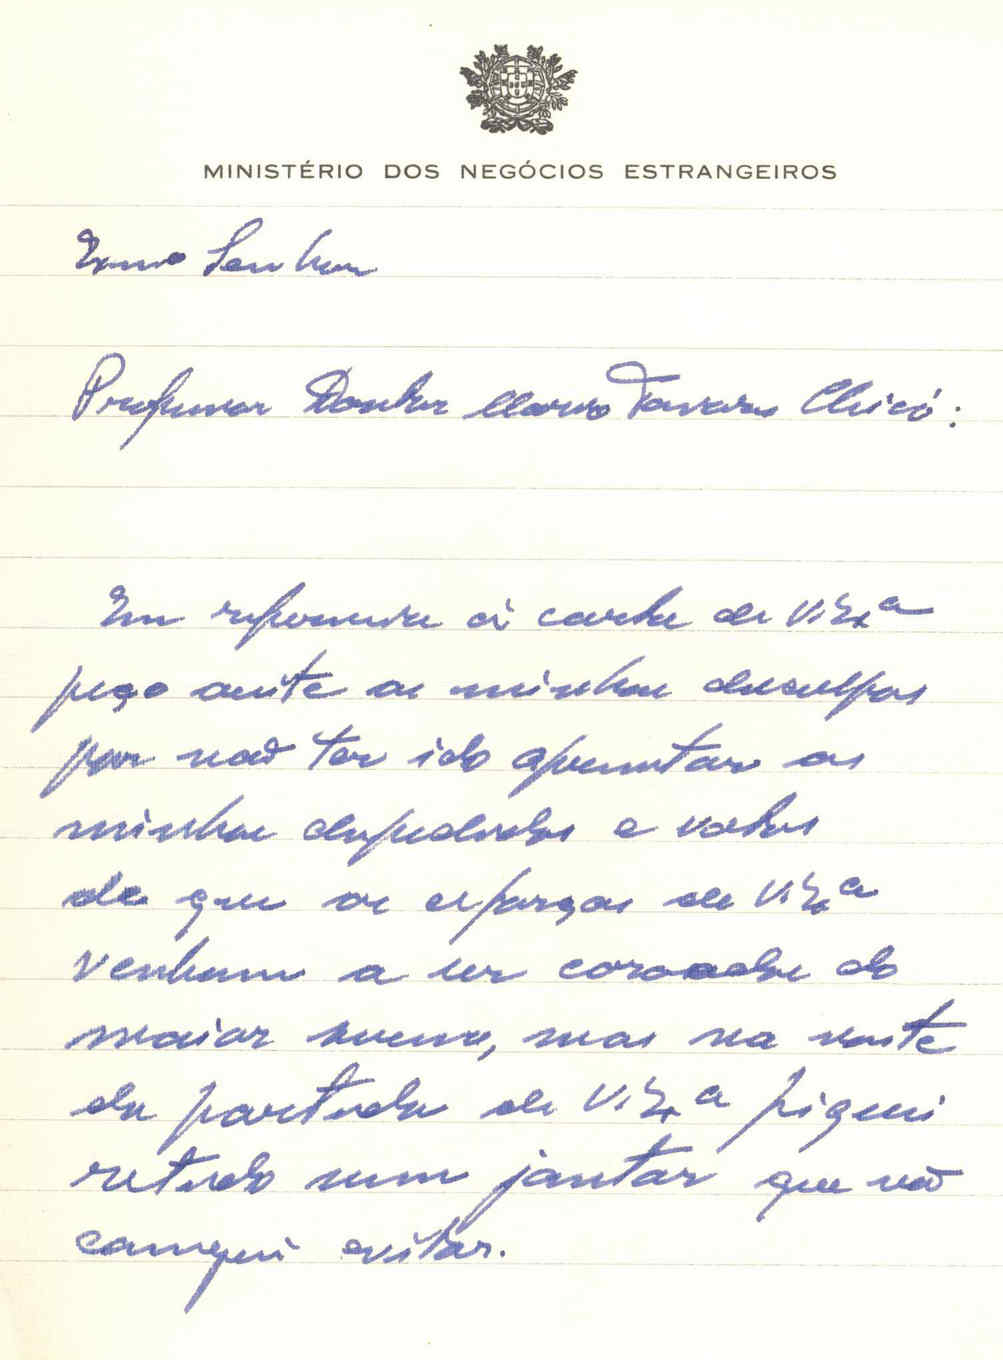 MINISTÉRIO DOS NEGÓCIOS ESTRANGEIROS
Exmo Senhor
Professor Doutor Mario Tavares Chicó:
Em resposta à carta de V. Ex.a
peço aceite as minhas desculpas
por não ter ido apresentar as
minhas despedidas e votos
de que os esforços de V. Ex.a
venham a ser coroados do
maior sucesso, mas na noite
da partida de V. Ex.a fiquei
retido num jantar que não
consegui evitar.